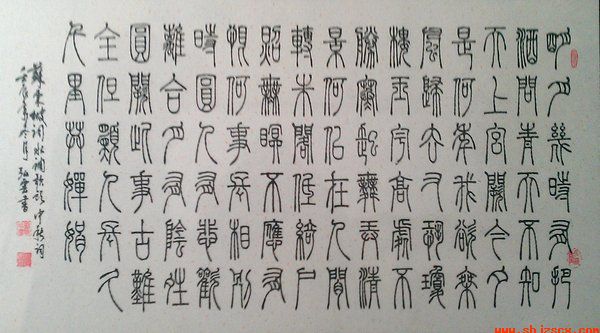 明月幾時有把
酒問青天不知
天上宮闕今夕
是何年我欲乘
風歸去又恐瓊
樓玉宇高處不
勝寒起舞弄清
景何似在人間
轉朱閣低綺戶
照無眠不應有
恨何事長相別
時圓人有悲歡
離合月有陰夝
圓闕此事古難
全但願人長久
千里共嬋娟
蘇東坡詞水調歌頭中秋詞
壬辰年冬月